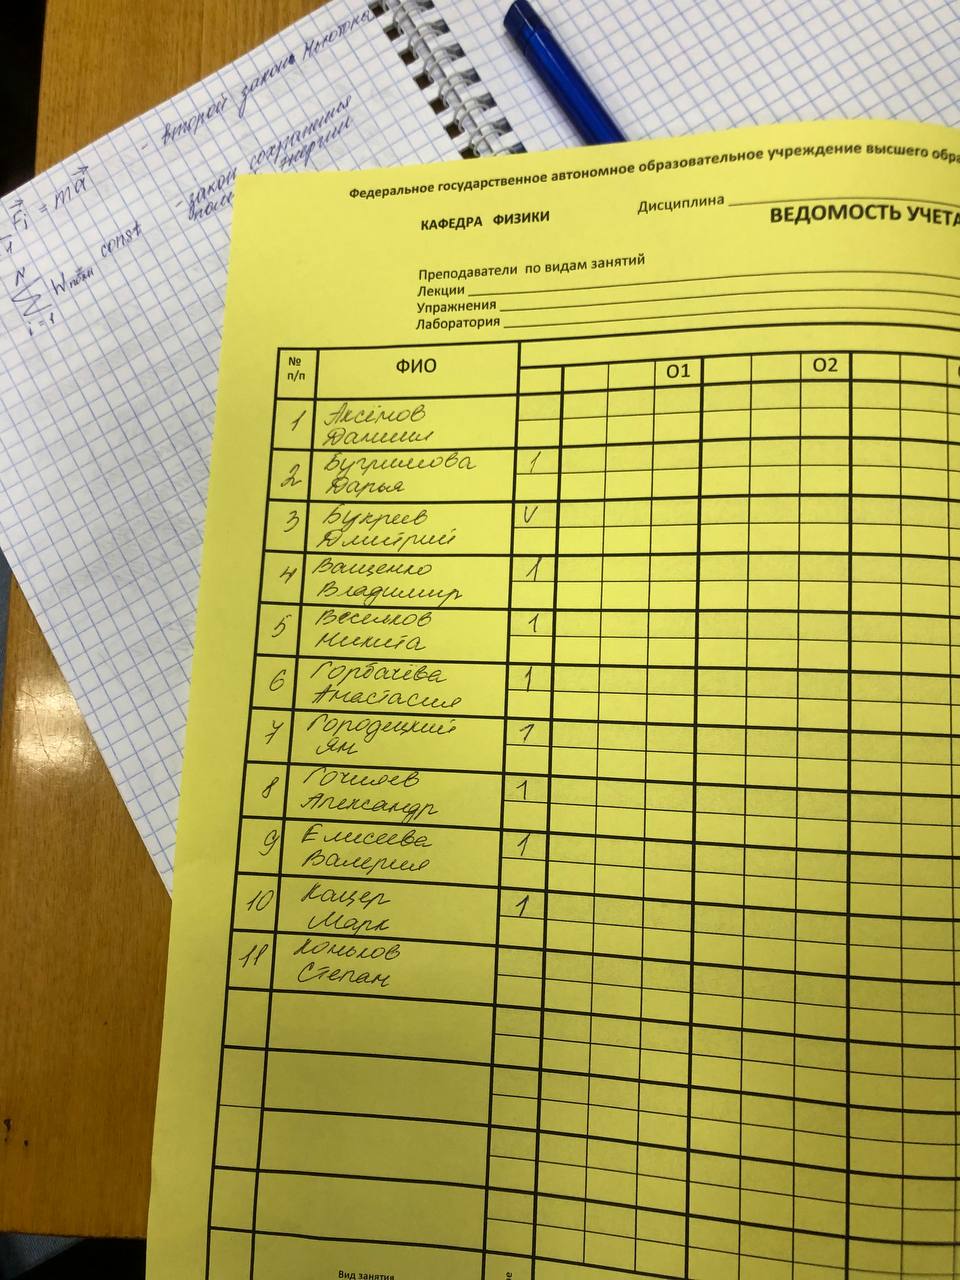 - второй закон Ньютона
F⃗i = ma⃗
- закон сохранения
полн энергии
Wполн const
N
i=1
Федеральное государственное автономное образовательное учреждение высшего обра
КАФЕДРА ФИЗИКИ
Дисциплина
ВЕДОМОСТЬ УЧЕТА
Преподаватели по видам занятий
Лекции
Упражнения
Лаборатория
№ п/п ФИО О1 О2
1 Аксёнов
Даниил
2 Бугримова 1
Дарья
3 Букреев V
Дмитрий
4 Ващенко 1
Владимир
5 Веселков 1
Никита
6 Горбачёва 1
Анастасия
7 Городецкий 1
Ян
8 Гочияев 1
Александр
9 Елисеева 1
Валерия
10 Кацер 1
Марк
11 Коньков
Степан
Вид занятия